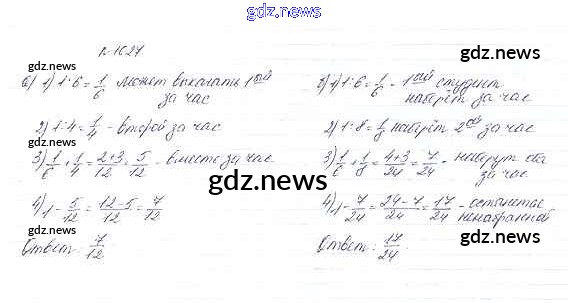 gdz.news
№1627
а) 1) 1:6 = 1/6 может выкопать 1ый за час
2) 1:4 = 1/4 - второй за час
3) 1/6 + 1/4 = 2+3/12 = 5/12 - вместе за час
4) 1 - 5/12 = 12-5/12 = 7/12
Ответ: 7/12
б) 1) 1:6 = 1/6 - 1ый студент наберёт за час
2) 1:8 = 1/8 наберёт 2ой за час
3) 1/6 + 1/8 = 4+3/24 = 7/24 - наберут оба за час
4) 1 - 7/24 = 24-7/24 = 17/24 - останется ненабранной
Ответ: 17/24.
gdz.news
gdz.news
gdz.news
gdz.news
gdz.news
gdz.news
gdz.news
gdz.news
gdz.news